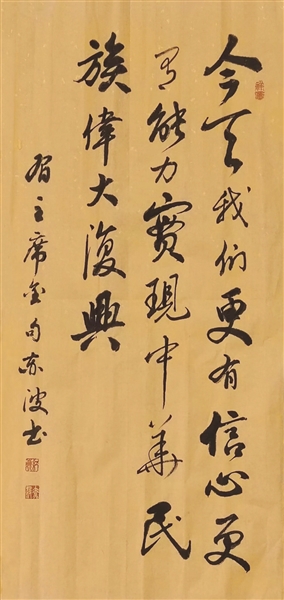 今天我们更有信心更
有能力實現中華民
族偉大復興
習主席金句亦波书